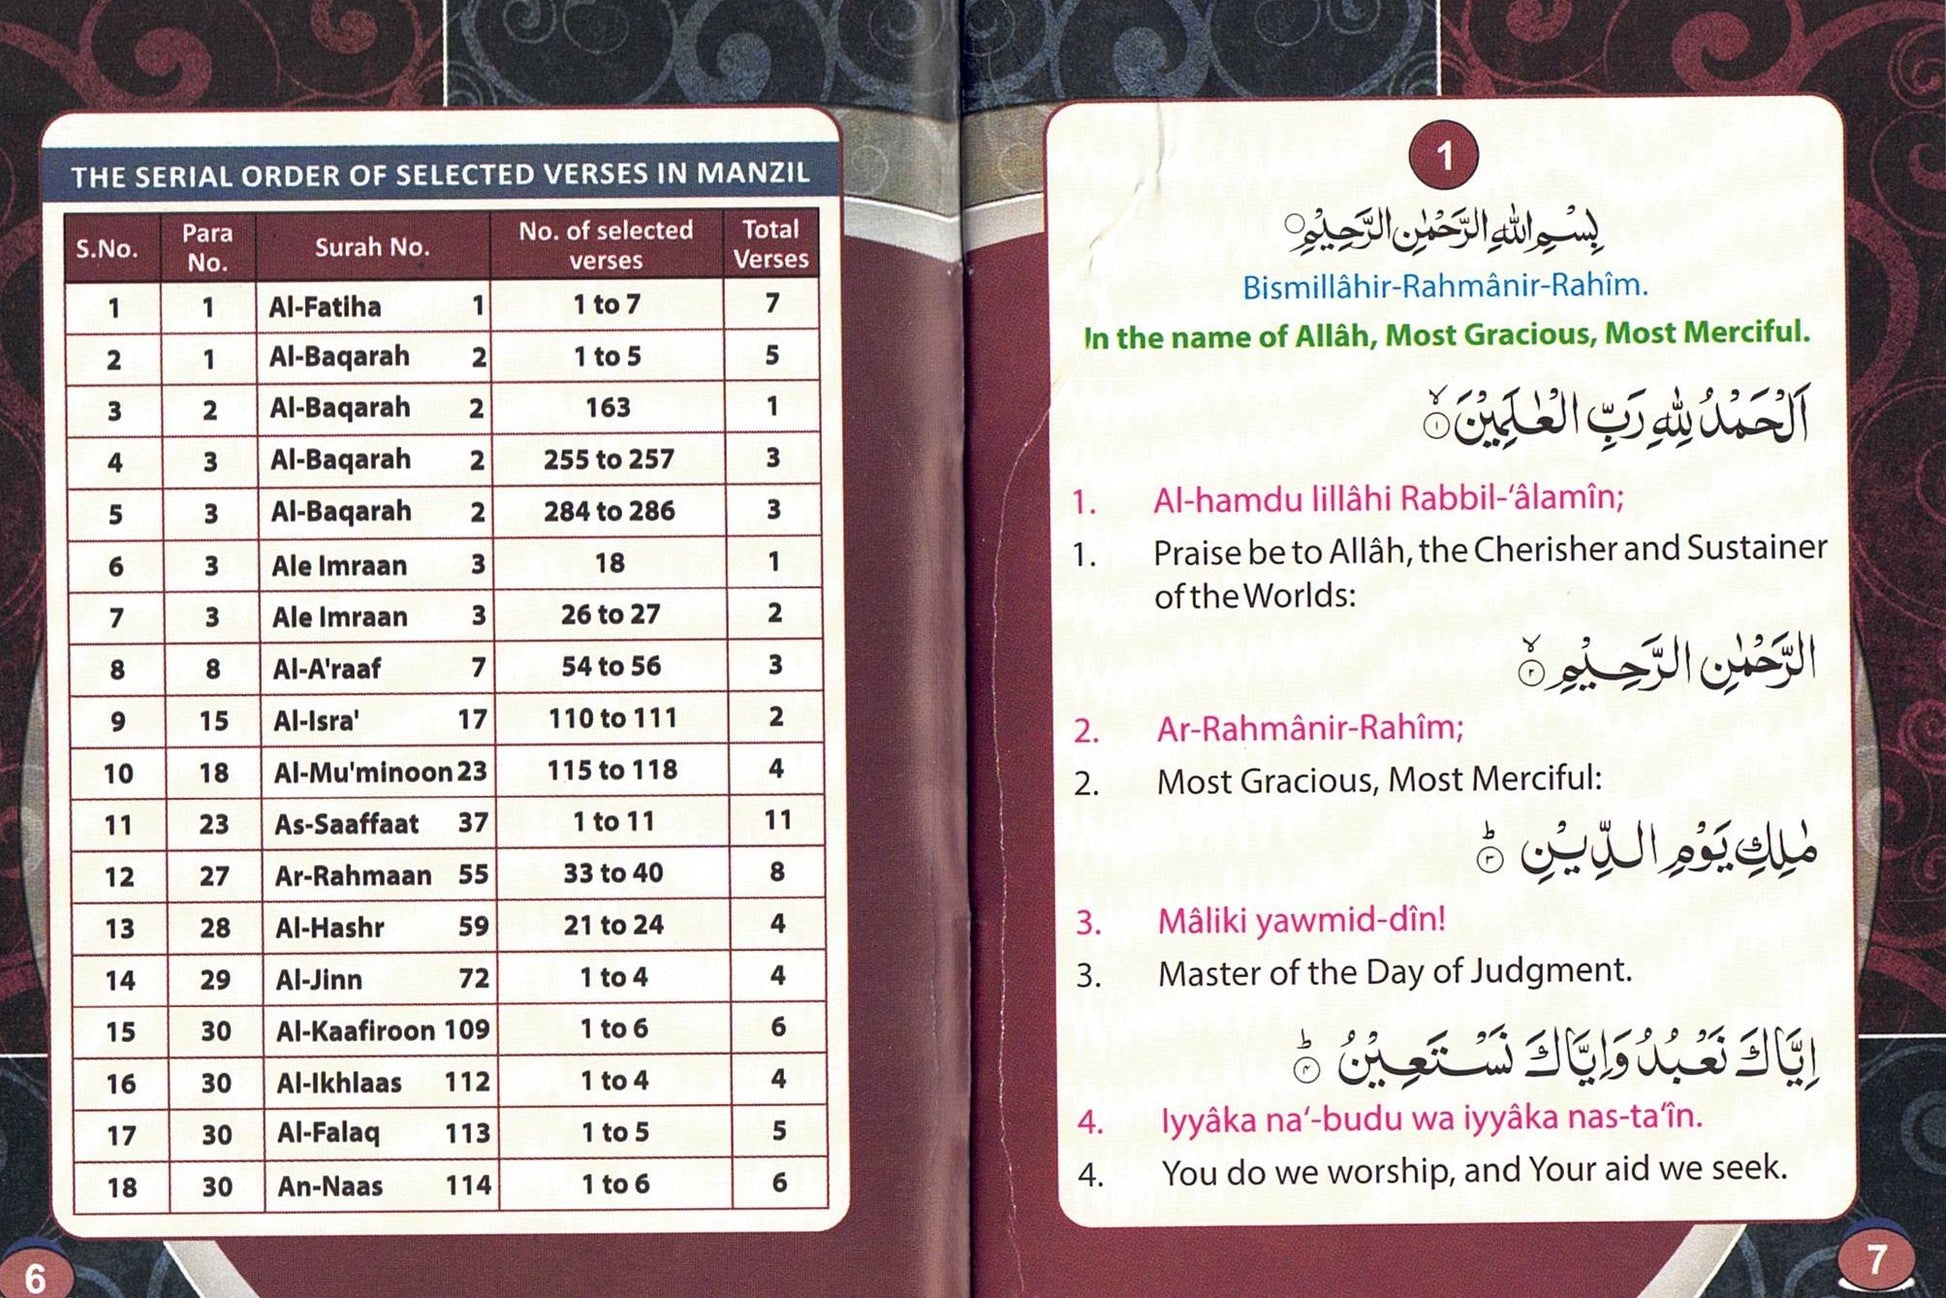 THE SERIAL ORDER OF SELECTED VERSES IN MANZIL
S.No. Para No. Surah No. No. of selected verses Total Verses
1 1 Al-Fatiha 1 1 to 7 7
2 1 Al-Baqarah 2 1 to 5 5
3 2 Al-Baqarah 2 163 1
4 3 Al-Baqarah 2 255 to 257 3
5 3 Al-Baqarah 2 284 to 286 3
6 3 Ale Imraan 3 18 1
7 3 Ale Imraan 3 26 to 27 2
8 8 Al-A'raaf 7 54 to 56 3
9 15 Al-Isra' 17 110 to 111 2
10 18 Al-Mu'minoon 23 115 to 118 4
11 23 As-Saaffaat 37 1 to 11 11
12 27 Ar-Rahmaan 55 33 to 40 8
13 28 Al-Hashr 59 21 to 24 4
14 29 Al-Jinn 72 1 to 4 4
15 30 Al-Kaafiroon 109 1 to 6 6
16 30 Al-Ikhlaas 112 1 to 4 4
17 30 Al-Falaq 113 1 to 5 5
18 30 An-Naas 114 1 to 6 6
6
1
بِسْمِ اللهِ الرَّحْمٰنِ الرَّحِيْمِ
Bismillâhir-Rahmânir-Rahîm.
In the name of Allâh, Most Gracious, Most Merciful.
اَلْحَمْدُ لِلّٰهِ رَبِّ الْعٰلَمِيْنَ ۙ۱
1. Al-hamdu lillâhi Rabbil-‘âlamîn;
1. Praise be to Allâh, the Cherisher and Sustainer
of the Worlds:
الرَّحْمٰنِ الرَّحِيْمِ ۙ۲
2. Ar-Rahmânir-Rahîm;
2. Most Gracious, Most Merciful:
مٰلِكِ يَوْمِ الدِّيْنِ ؕ۳
3. Mâliki yawmid-dîn!
3. Master of the Day of Judgment.
اِيَّاكَ نَعْبُدُ وَاِيَّاكَ نَسْتَعِيْنُ ؕ۴
4. Iyyâka na‘-budu wa iyyâka nas-ta‘în.
4. You do we worship, and Your aid we seek.
7